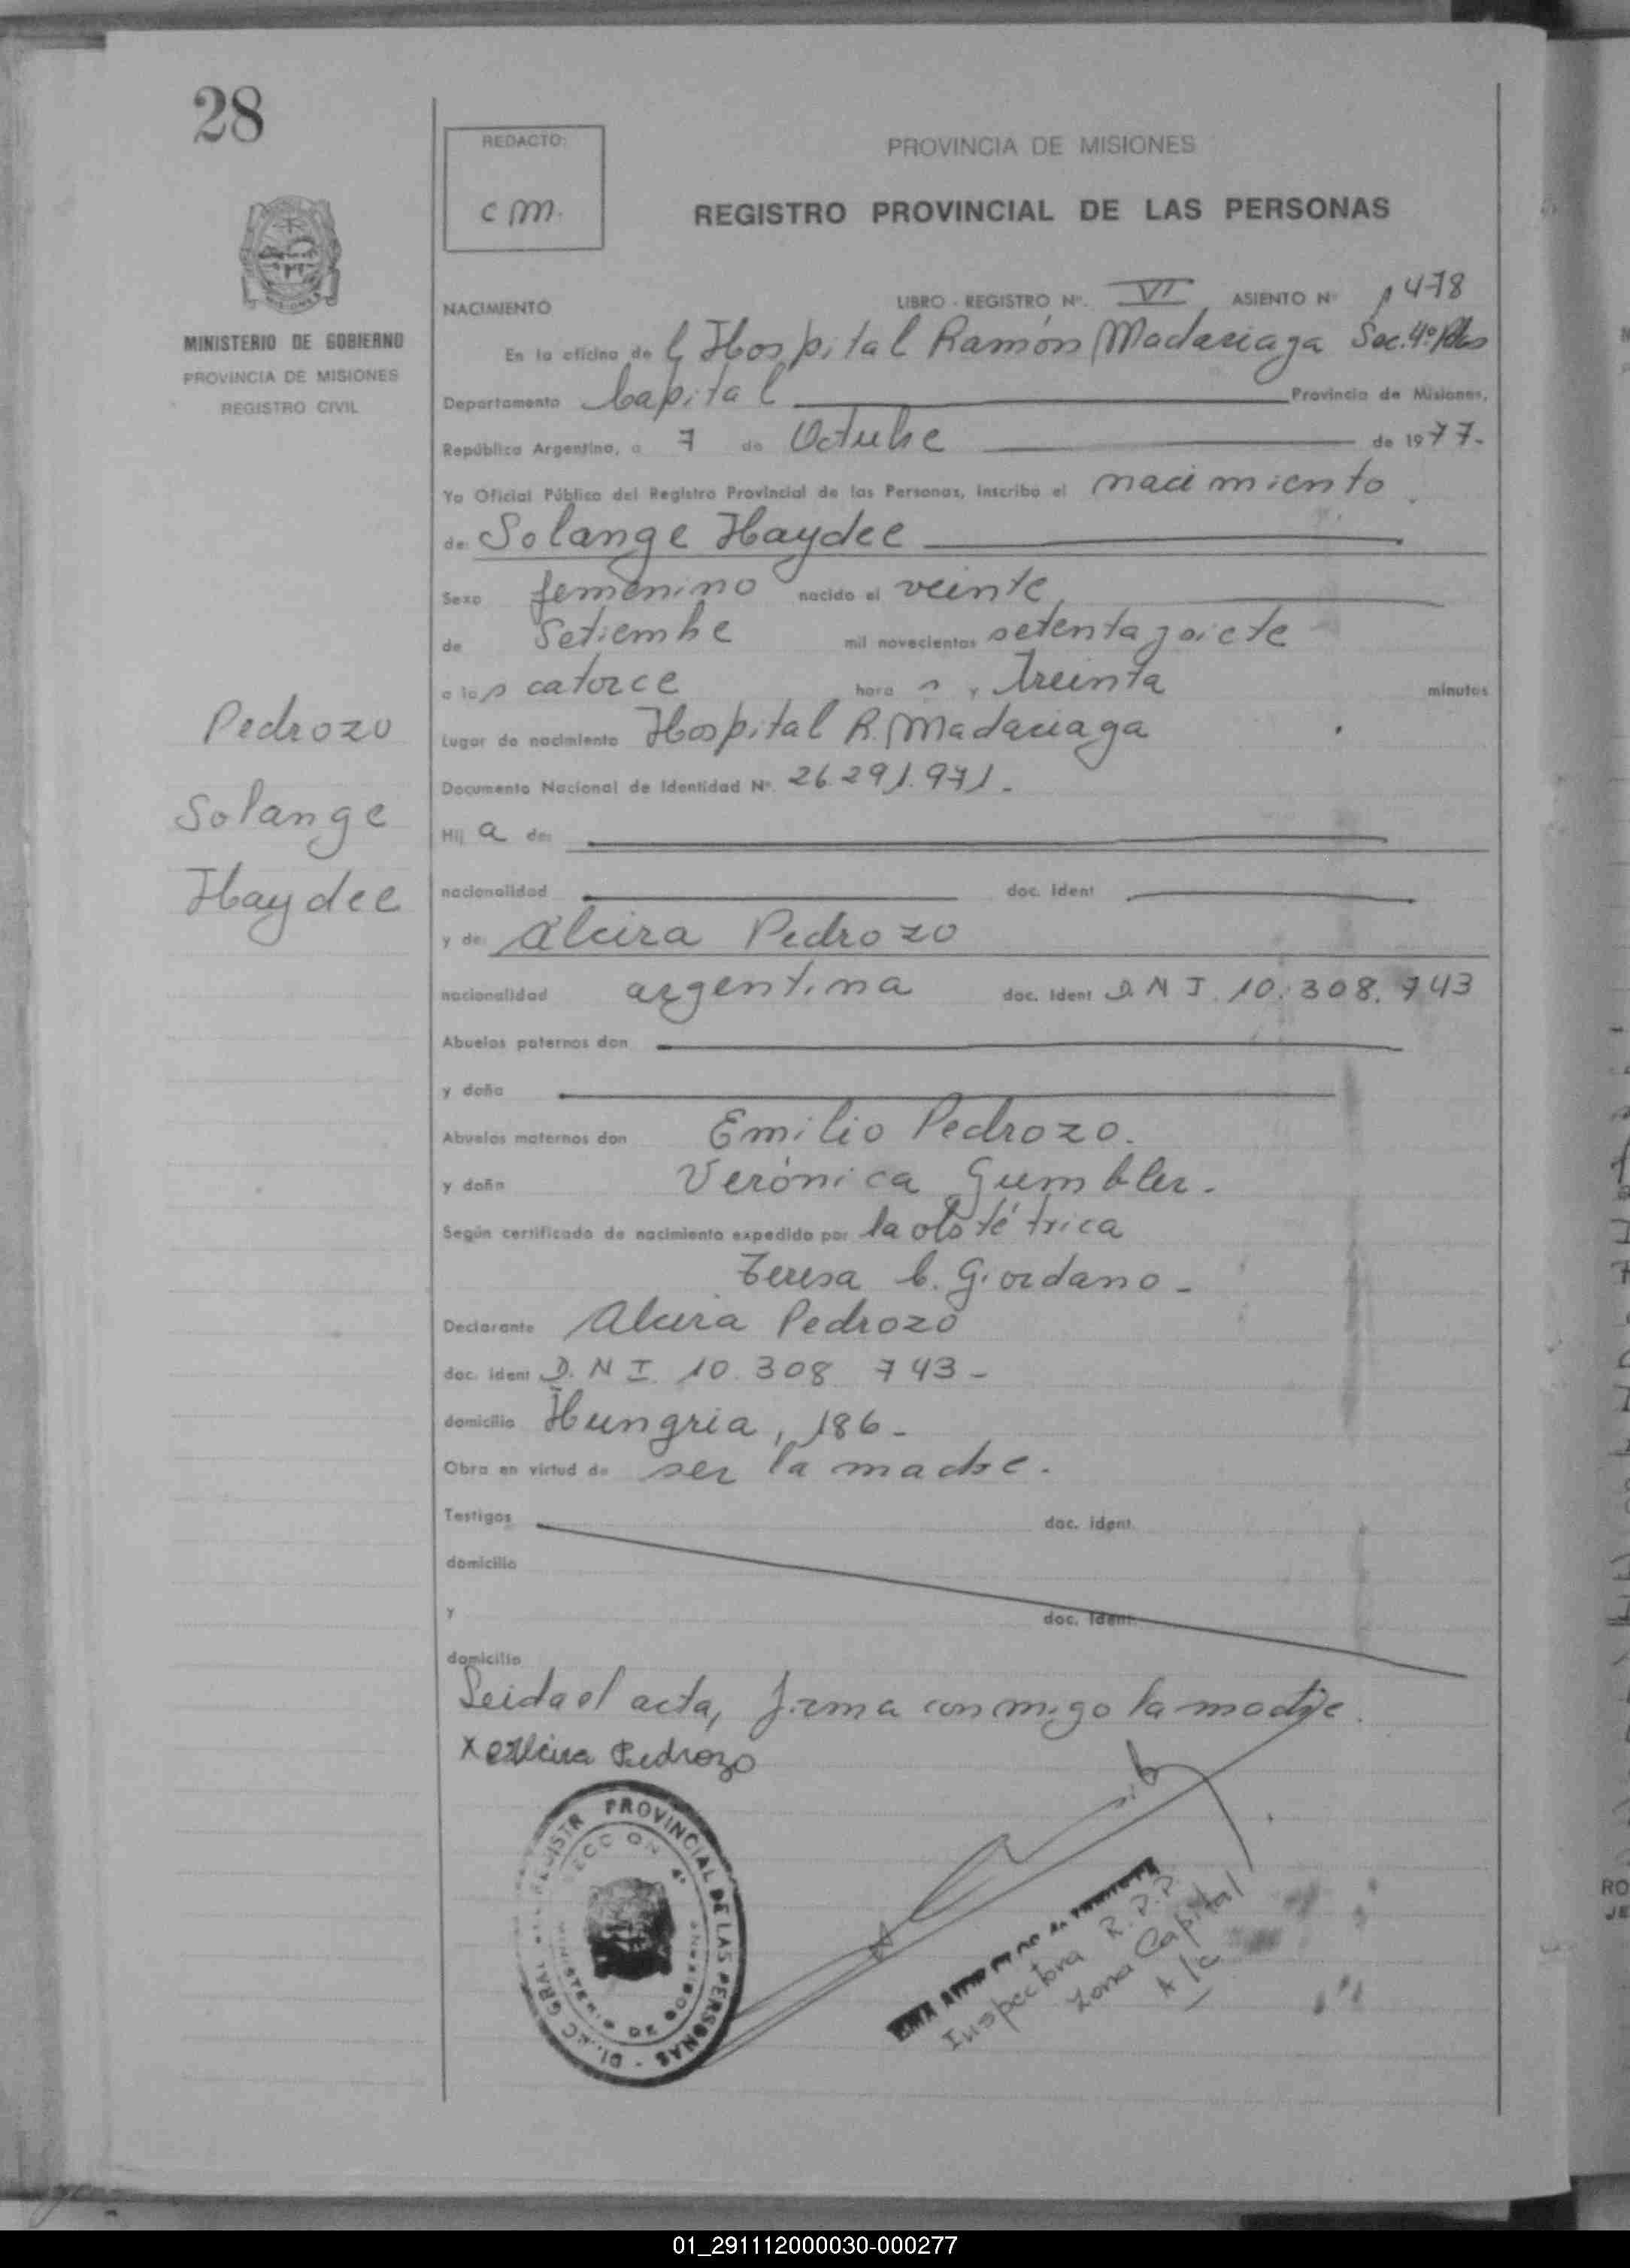 28
REDACTO:
cm.
PROVINCIA DE MISIONES
REGISTRO PROVINCIAL DE LAS PERSONAS
MINISTERIO DE GOBIERNO
PROVINCIA DE MISIONES
REGISTRO CIVIL
NACIMIENTO LIBRO - REGISTRO Nº. VI ASIENTO Nº 1478
En la oficina de Hospital Ramón Madariaga Sec. 4º Pdas
Departamento Capital Provincia de Misiones,
República Argentina, a 7 de Octubre de 1977.
Yo Oficial Público del Registro Provincial de las Personas, inscribo el nacimiento
de: Solange Haydee
Sexo femenino nacido el veinte
de Setiembre mil novecientos setenta y siete
a las catorce hora s y treinta minutos
Lugar de nacimiento Hospital R. Madariaga
Documento Nacional de Identidad Nº. 26.291.971.
Hij a de:
nacionalidad doc. ident
y de: Alcira Pedrozo
nacionalidad argentina doc. ident D.N.I. 10.308.743
Abuelos paternos don
y doña
Abuelos maternos don Emilio Pedrozo.
y doña Verónica Gumbler.
Según certificado de nacimiento expedido por la obstétrica
Teresa C. Giordano -
Declarante Alcira Pedrozo
doc. ident D.N.I. 10.308 743 -
domicilio Hungria, 186 -
Obra en virtud de ser la madre.
Testigos doc. ident.
domicilio
y doc. ident.
domicilio
Leida el acta, firma conmigo la madre.
x Alcira Pedrozo
Pedrozo
Solange
Haydee
DIREC GRAL DEL REGISTR PROVINCIAL DE LAS PERSONAS
SECCION 4ª
MINISTERIO DE GOBIERNO
Inspectora R.P.P.
Zona Capital
A/c
01_291112000030-000277